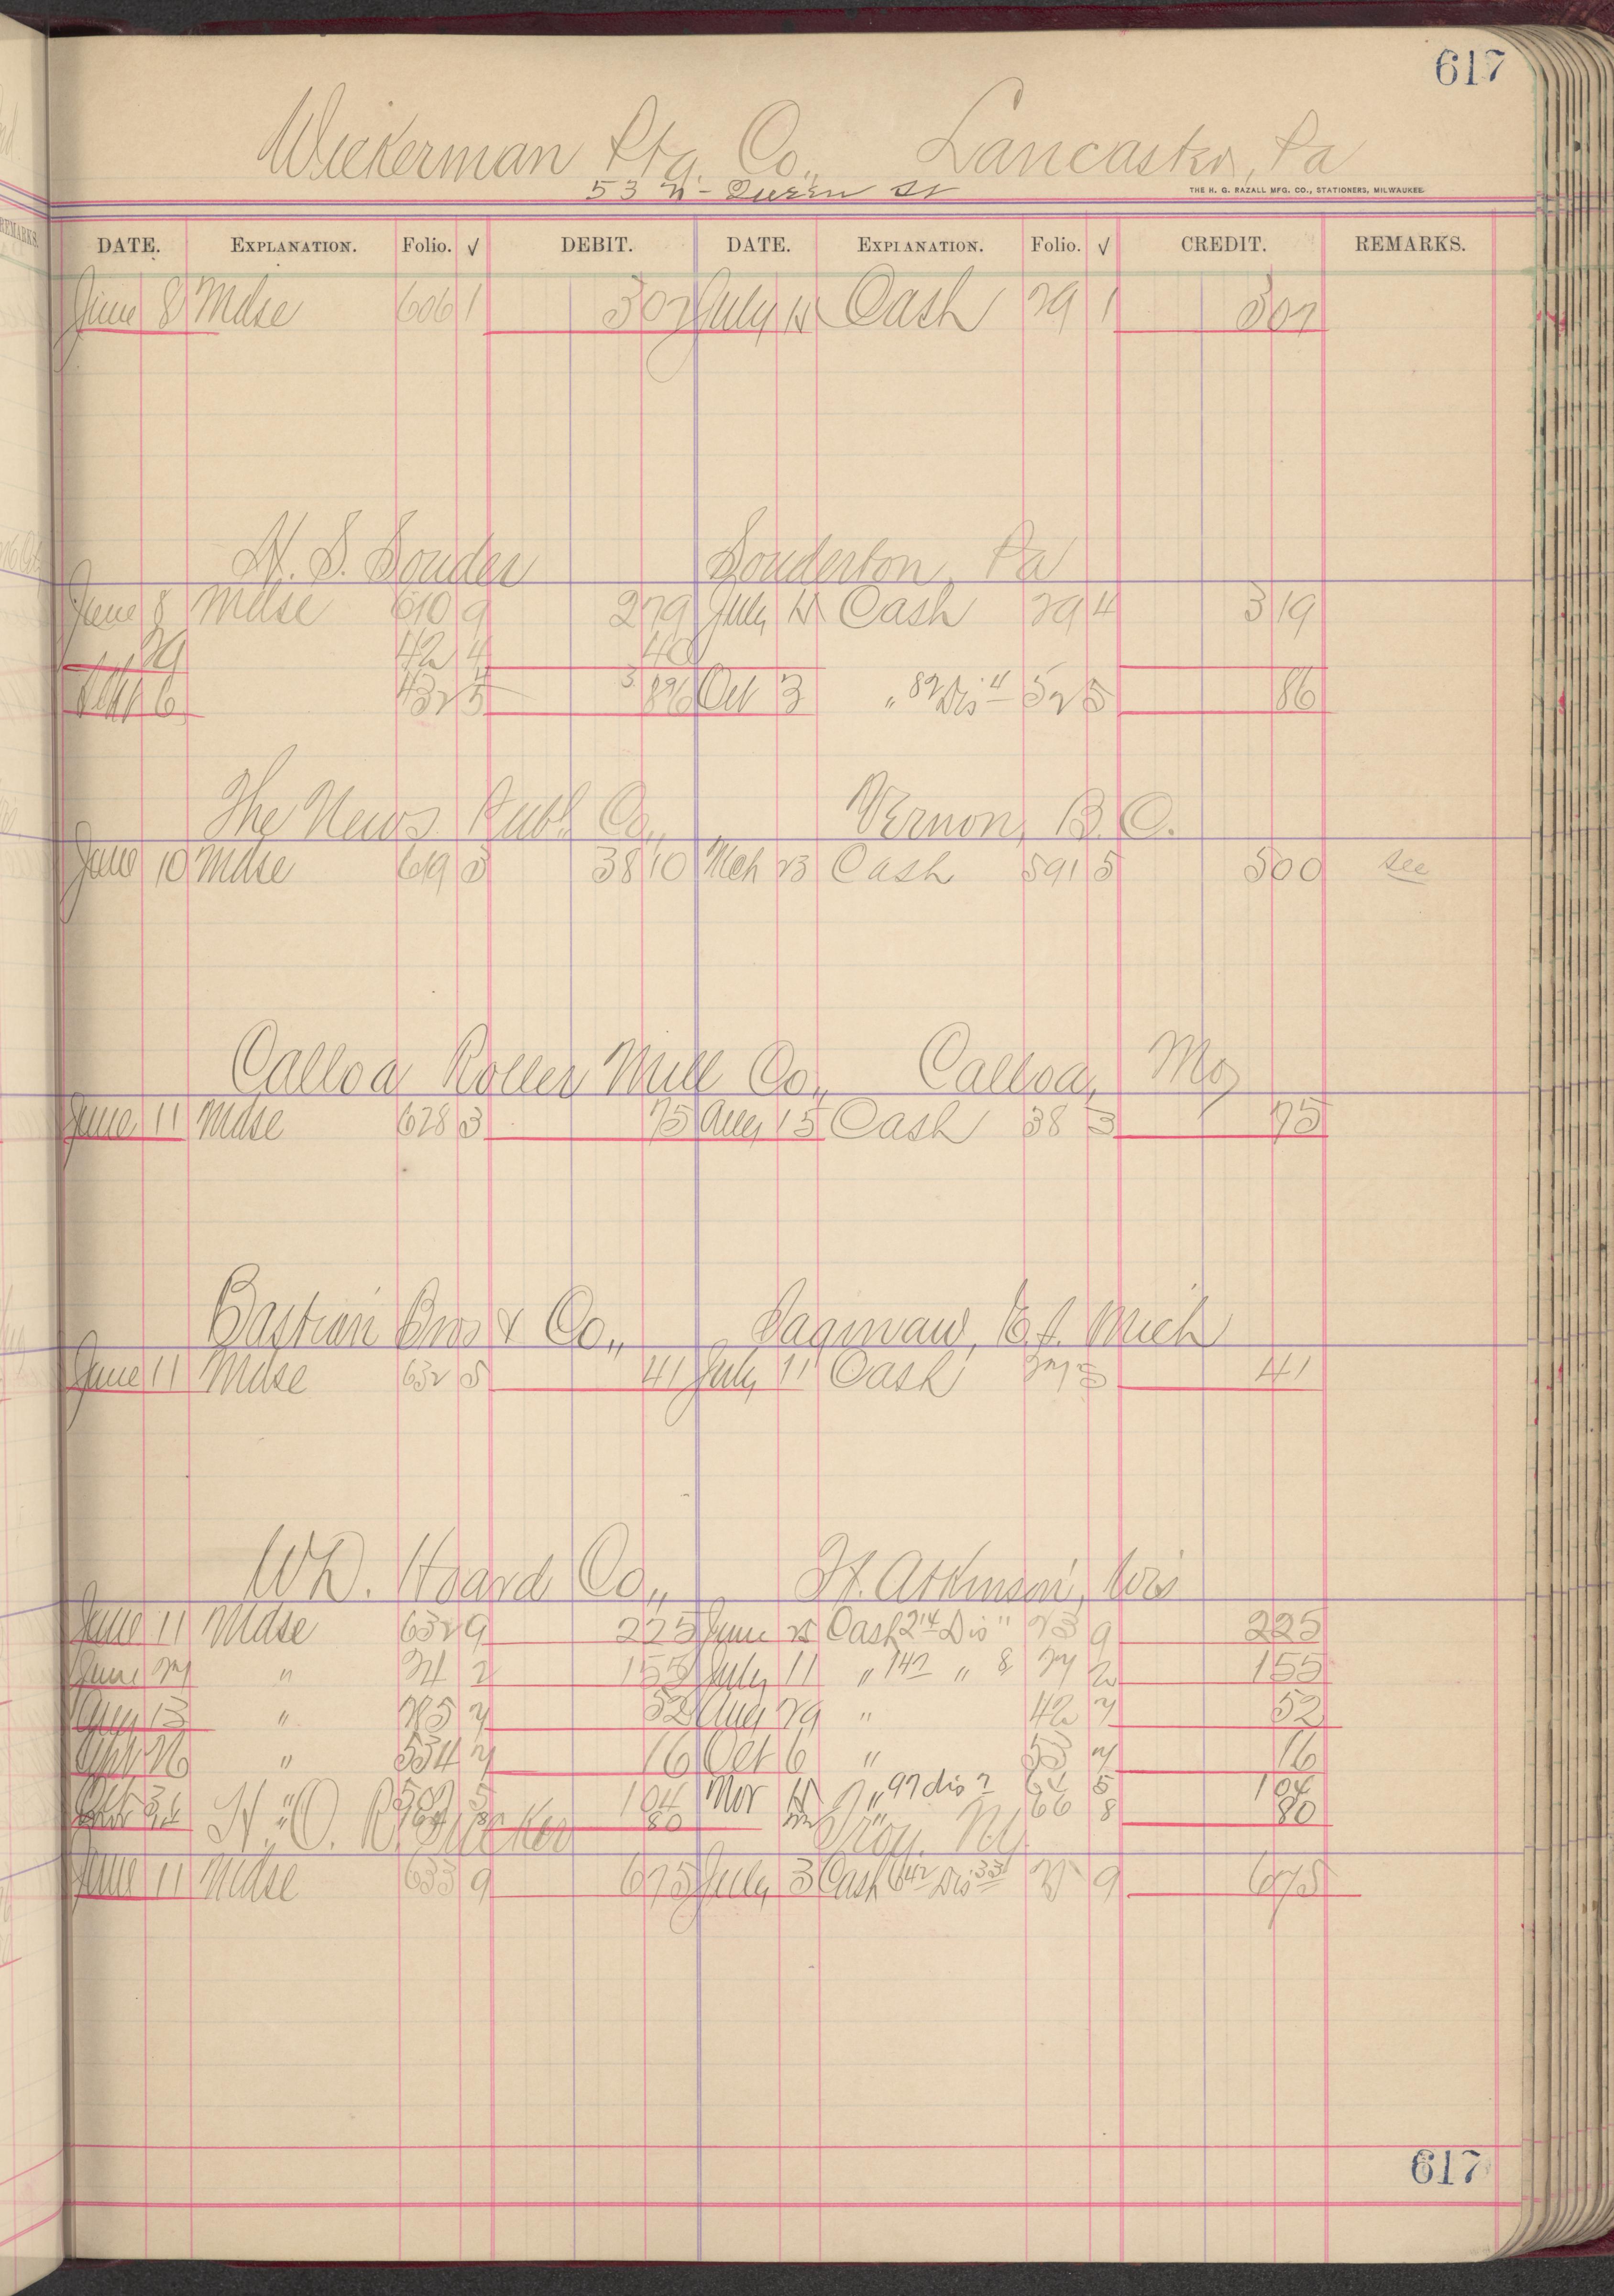 617
Wickerman Ptg. Co., Lancaster, Pa
53 N - Queen St
THE H. G. RAZALL MFG. CO., STATIONERS, MILWAUKEE.
DATE. EXPLANATION. Folio. √ DEBIT. DATE. EXPLANATION. Folio. √ CREDIT. REMARKS.
June 8 Mdse 606 1 July Cash 29 1
H. S. Souder Souderton, Pa
June 8 Mdse 610 9 279 July Cash 29 4 319
29 42 4 40
Sept 6 Oct 3 " 82 Dis 4 52 5 86
The News Publ Co., Vernon, B.C.
June 10 Mdse 619 3 38 10 Mch 23 Cash 591 5 500 see
Calloa Roller Mill Co., Calloa, Mo
June 11 Mdse 628 3 75 Aug 15 Cash 38 3 75
Bastian Bros & Co., Saginaw, E.S. Mich
June 11 Mdse 632 5 41 July 11 Cash 41
W.D. Hoard Co., Ft. Atkinson, Wis
June 11 Mdse 632 9 225 June 25 Cash Dis 23 9 225
June 27 " 155 July 11 " 147 " 8 155
Aug 13 " 52 Aug 29 " 42 7 52
Sept 26 " 554 7 16 Oct 6 " 53 7 16
Oct 104 Nov " 97 dis 2 64 5 104
80 66 8 80
Troy, NY
June 11 Mdse 633 9 675 July 3 Cash Dis 9 675
617